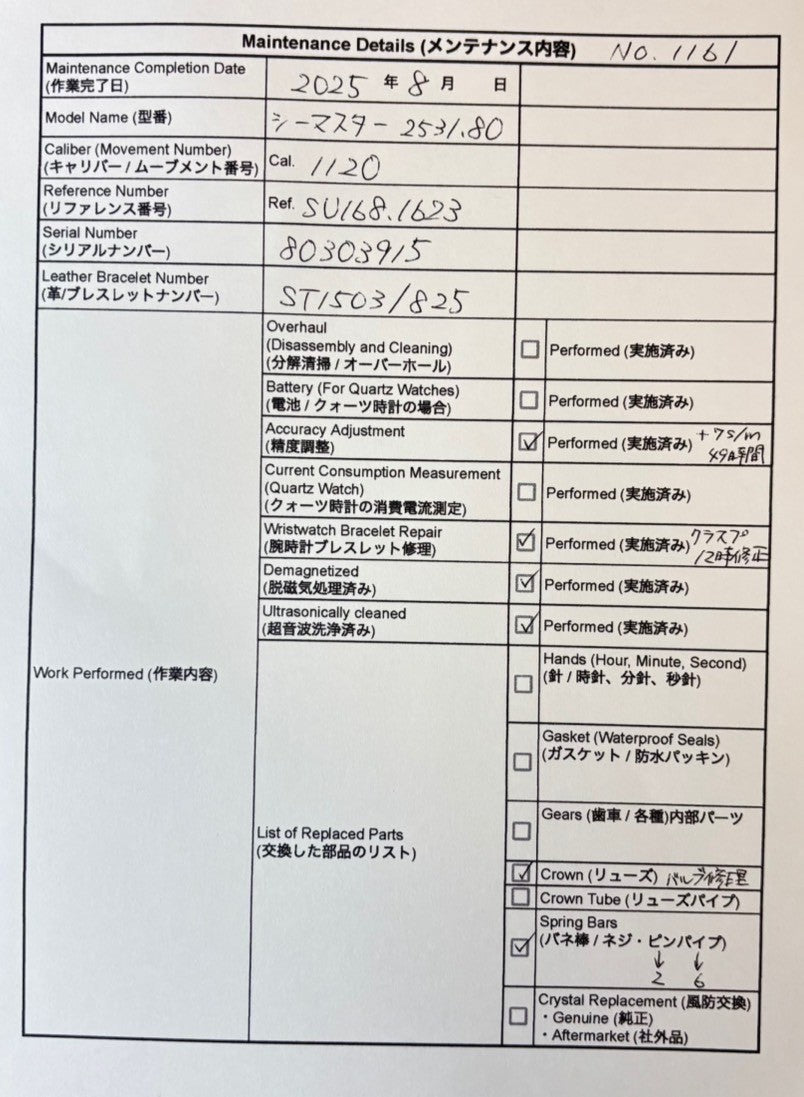 Maintenance Details (メンテナンス内容) NO. 1161
Maintenance Completion Date
(作業完了日)
2025 年 8 月 日
Model Name (型番)
シーマスター 2531.80
Caliber (Movement Number)
(キャリバー / ムーブメント番号)
Cal. 1120
Reference Number
(リファレンス番号)
Ref. SU168.1623
Serial Number
(シリアルナンバー)
80303915
Leather Bracelet Number
(革/ブレスレットナンバー)
ST1503/825
Work Performed (作業内容)
Overhaul
(Disassembly and Cleaning)
(分解清掃 / オーバーホール)
Performed (実施済み)
Battery (For Quartz Watches)
(電池 / クォーツ時計の場合)
Performed (実施済み)
Accuracy Adjustment
(精度調整)
Performed (実施済み) +7s/m
49時間
Current Consumption Measurement
(Quartz Watch)
(クォーツ時計の消費電流測定)
Performed (実施済み)
Wristwatch Bracelet Repair
(腕時計ブレスレット修理)
Performed (実施済み) クラスプ
12時修正
Demagnetized
(脱磁気処理済み)
Performed (実施済み)
Ultrasonically cleaned
(超音波洗浄済み)
Performed (実施済み)
List of Replaced Parts
(交換した部品のリスト)
Hands (Hour, Minute, Second)
(針 / 時針、分針、秒針)
Gasket (Waterproof Seals)
(ガスケット / 防水パッキン)
Gears (歯車 / 各種)内部パーツ
Crown (リューズ) バルブ修理
Crown Tube (リューズパイプ)
Spring Bars
(バネ棒 / ネジ・ピンパイプ)
↓ ↓
2 6
Crystal Replacement (風防交換)
・Genuine (純正)
・Aftermarket (社外品)